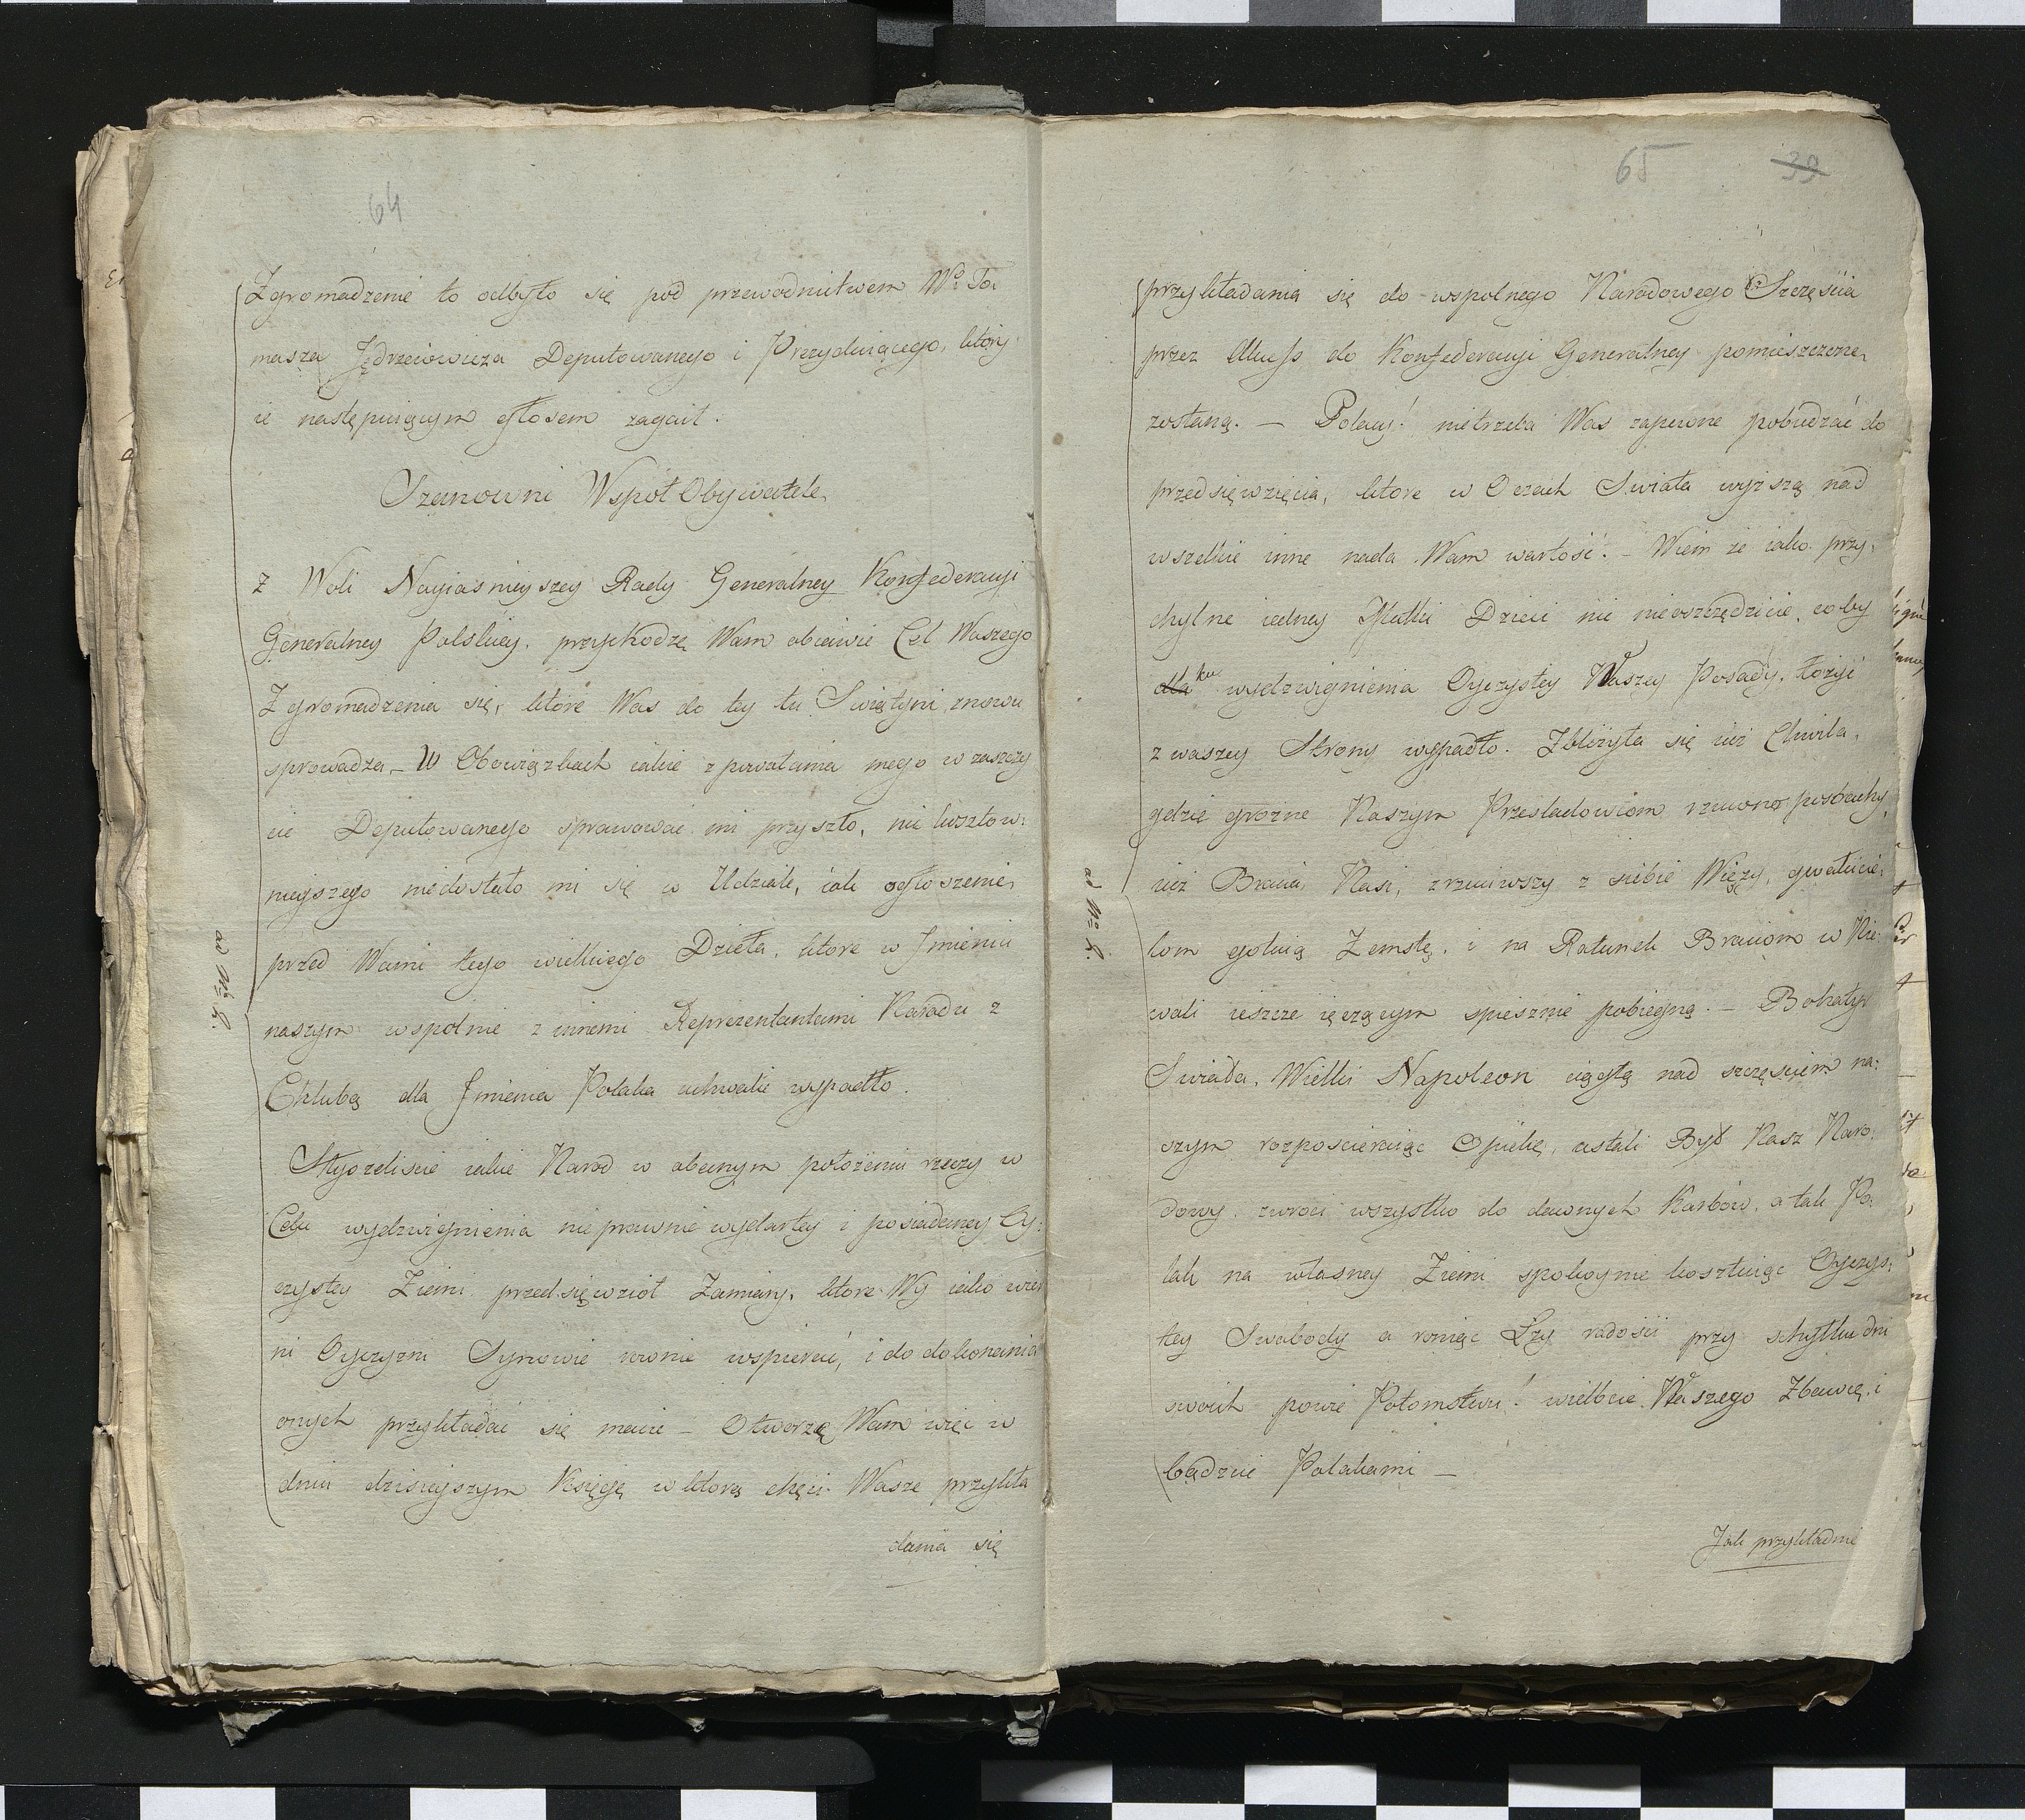 64
Zgromadzenie to odbyło się pod przewodnictwem Wo To:
masza Jędrzeiowicza Deputowanego i Prezyduiącego, który
ie następuiącym głosem zagaił:
Szanowni Współ Obywatele
Z Woli Nayiasnieyszey Rady Generalney Konfederacyi
Generalney Polskiey. przychodzę Wam obiawić Cel Waszego
Zgromadzenia się, które Was do tey tu Swiątyni znowu
sprowadza_ W Obowiązkach iakie z powołania mego w zaszczy
cie Deputowanego sprawować mi przyszło, nic kosztow:
nieyszego niedostało mi się w Udziale, iak ogłoszenie
przed Wami tego wielkiego Dzieła, które w Jmieniu
naszym wspolnie z innemi Reprezentantami Narodu z
Chlubą dla Jmienia Polaka uchwalić wypadło.
Słyszeliscie iakie Narod w obecnym położeniu rzeczy w
Celu wydzwignienia nieprawnie wydartey i posiadaney Oy:
czystey Ziemi przedsięwziął Zamiary, które Wy iako wier
ni Oyczyzni Synowie rownie wspierać, i do dokonania
onych przykładać się macie _ Otworzę Wam więc w
dniu dzisieyszym Księgę w którą chęci Wasze przykła
dania się
ad No 8.
65 39
przykładania się do wspolnego Narodowego Szczęścia
przez Akcess do Konfederacyi Generalney pomieszczone
zostaną. — Polacy! nietrzeba Was zapewne pobudzać do
przedsięwzięcia, które w Oczach Swiata wyższą nad
wszelkie inne nada Wam wartość. – Wiem że iako przy:
chylne iedney Matki Dzieci nic nieoszczędzicie, coby
dla ku wydzwignienia Oyczystey Waszey Posady, łożyć
z waszey Strony wypadło. Zbliżyła się iuż Chwila,
gdzie grozne Naszym Przesladowcom rzucono postrachy,
iuż Bracia Nasi, zrzuciwszy z siebie Więzy, gwałcicie:
lom gotuią Zemstę, i na Ratunek Braciom w Nie:
woli ieszcze ięczącym spiesznie pobiegną. — Bohatyr
Swiata, Wielki Napoleon ciągłą nad szczęsciem na:
szym rozpościeraiąc Opiekę, ustali Byt Nasz Naro:
dowy, zwroci wszystko do dawnych Karbow, a tak Po:
lak na własney Ziemi spokoynie kosztuiąc Oyczys:
tey Swobody a roniąc Łzy radości przy schyłku dni
swoich powie Potomstwu! wielbcie Waszego Zbawcę, i
bądzcie Polakami —
Jak przykładnie
ad No 8.